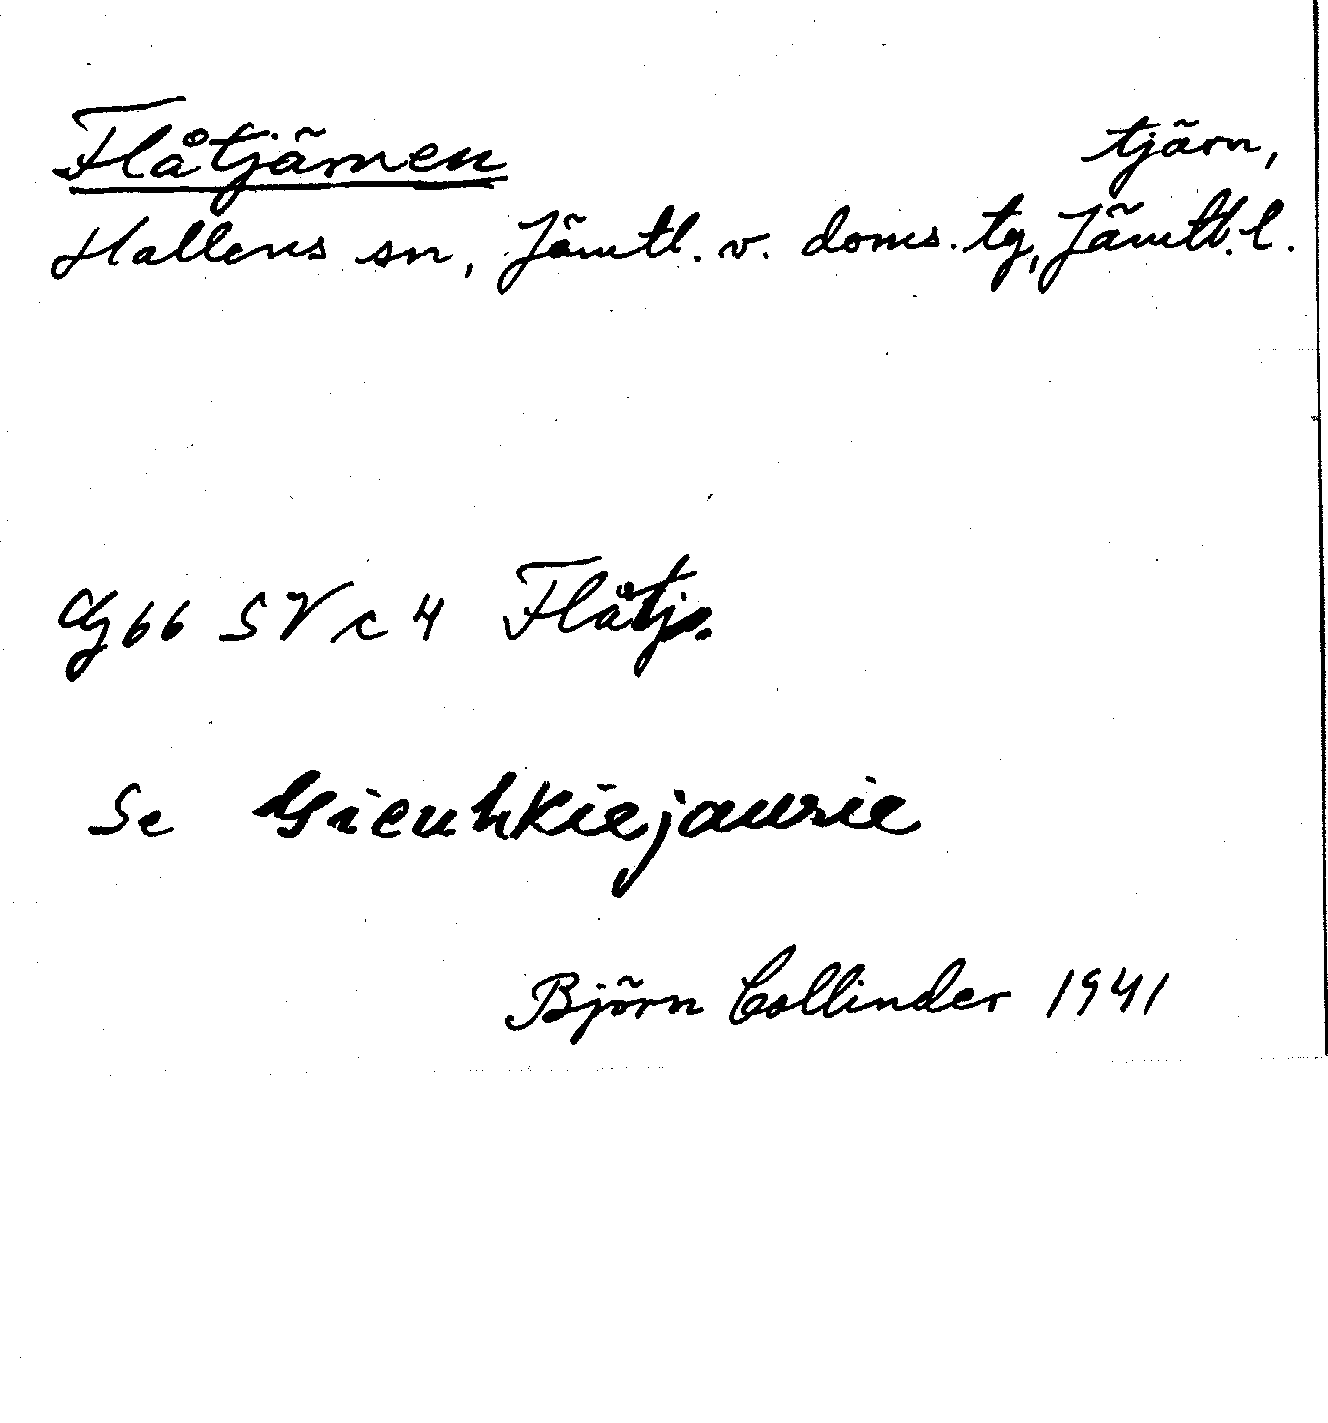 Flåtjärnen tjärn,
Hallens sn, Jämtl. v. doms. tg, Jämtl. l.
Gg 66 SV c 4 Flåtj.
Se Gieuhkiejaurie
Björn Collinder 1941